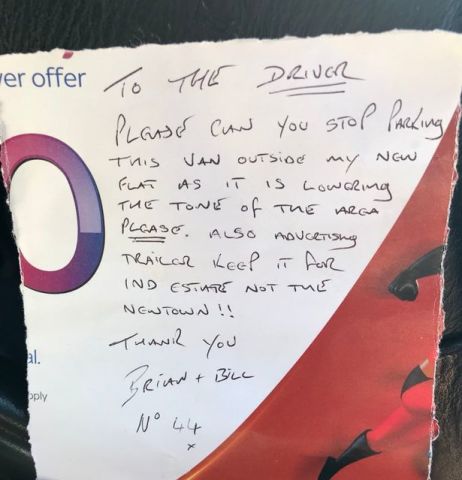 er offer
TO THE DRIVER
PLEASE CAN YOU STOP PARKING
THIS VAN OUTSIDE MY NEW
FLAT AS IT IS LOWERING
THE TONE OF THE AREA
PLEASE. ALSO ADVERTISING
TRAILER KEEP IT FOR
IND ESTATE NOT THE
NEWTOWN!!
THANK YOU
BRIAN + BILL
Nº 44
x
O
al.
pply